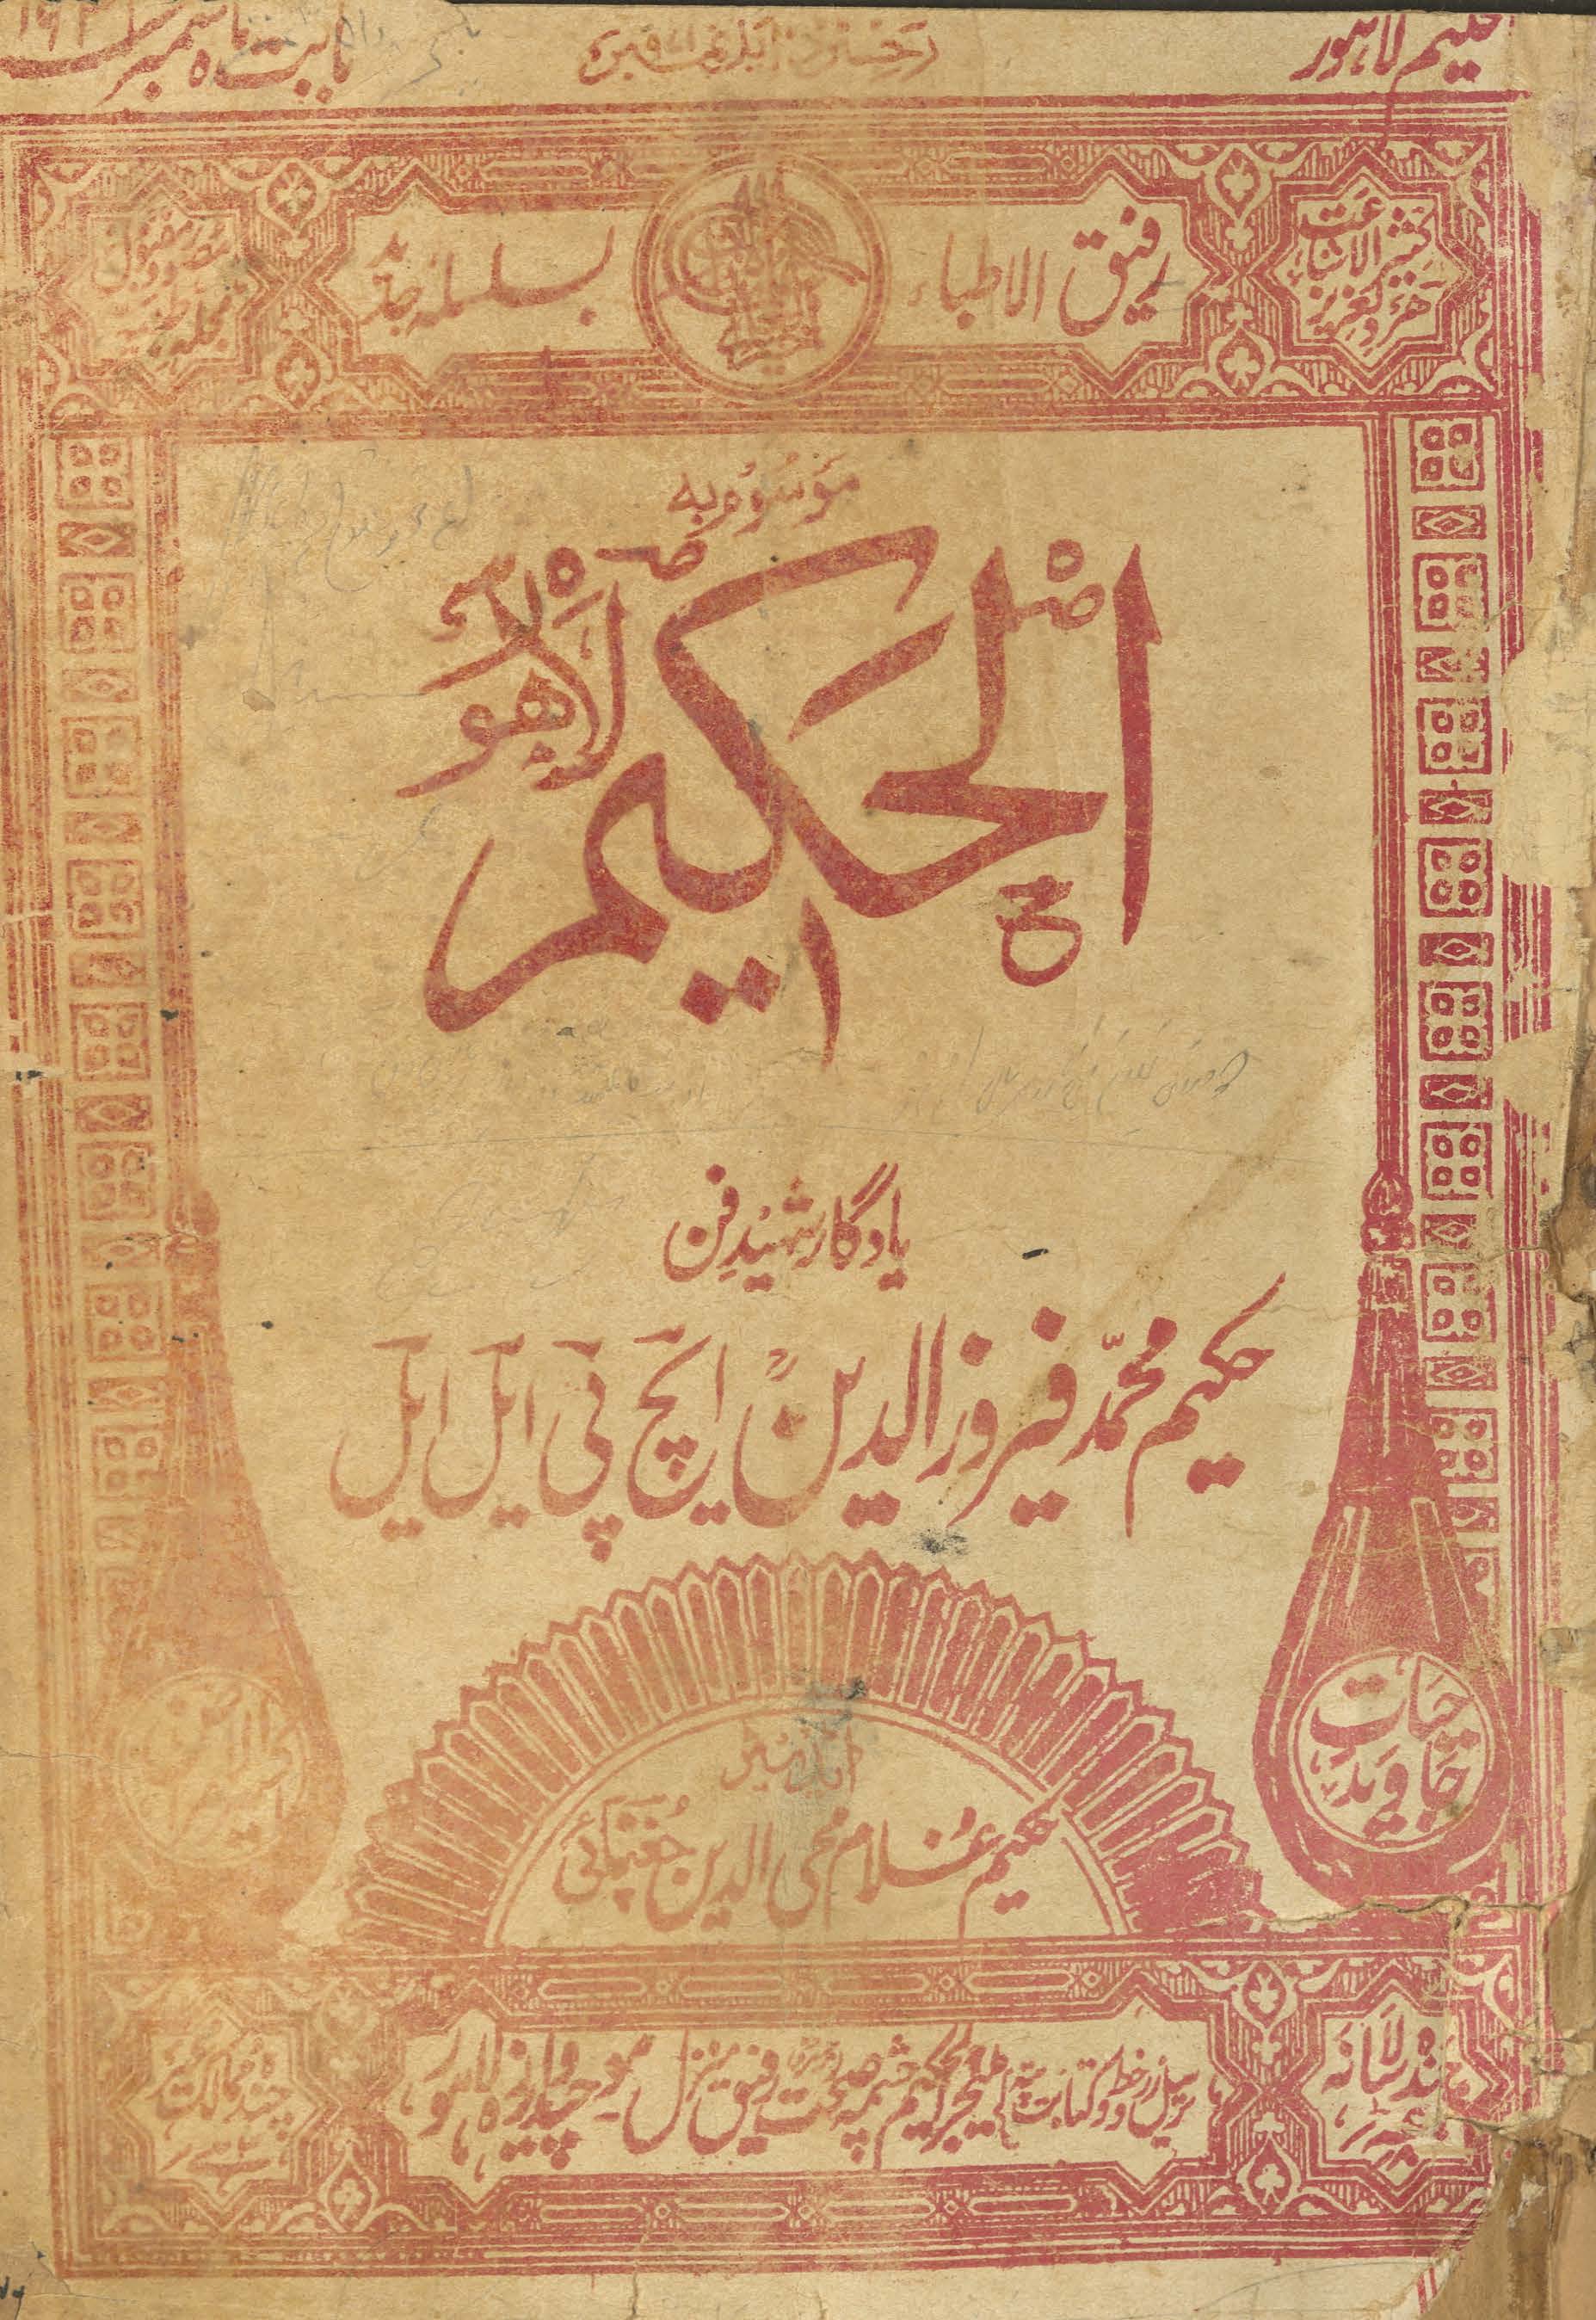 الحکیم لاہور
بابت ماہ ستمبر
رجسٹرڈ ایل نمبر
کثیر الاشاعت
ہر دلعزیز
رفیق الاطباء
بسلسلہ جدید
مصور و مقبول
مجلہ طبیہ
موسومہ بہ
الحکیم
لاہور
یادگار شہید فن
حکیم محمد فیروز الدین ایچ پی ایل ایل
حیات
جاوید
ایڈیٹر
حکیم غلام محی الدین چغتائی
چندہ سالانہ
ترسیل زر و خط و کتابت بنام منیجر الحکیم چشمہ صحت رفیق منزل موچیدروازہ لاہور
چندہ ممالک غیر